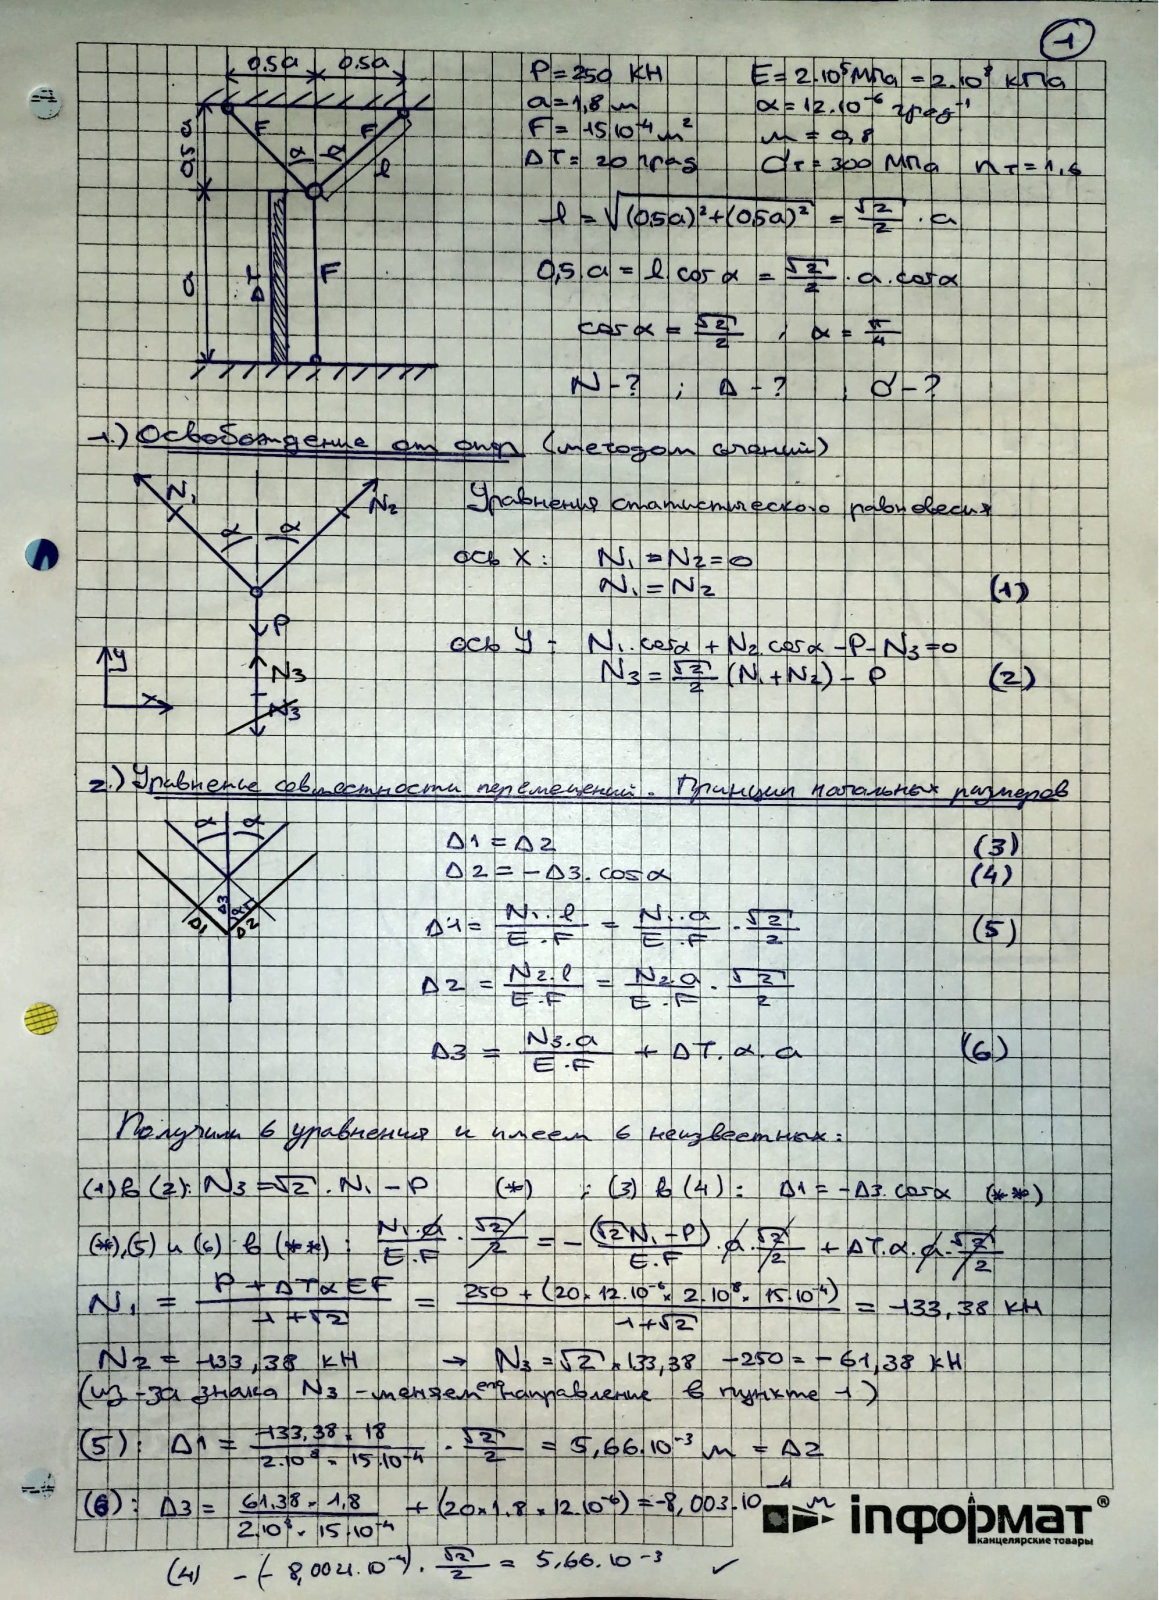 1
0.5a 0.5a
P=250 КН E=2.10⁵МПа=2.10⁸ кПа
a=1,8 м α=12.10⁻⁶ град⁻¹
F=15.10⁻⁴м² м=0,8
ΔT=20 град σт=300 МПа nт=1,6
F F
α α
l
0,5a
a
F
l=√(0,5a)²+(0,5a)² = √2/2 . a
0,5.a = l cosα = √2/2 . a.cosα
cosα=√2/2 ; α=π/4
N-? ; Δ-? ; σ-?
1.) Освобождение от опор (методом сечений)
N₁ N₂
α α
P
N₃
N₃
y
x
Уравнения статистического равновесия
ось X: N₁=N₂=0
N₁=N₂ (1)
ось Y: N₁.cosα+N₂.cosα-P-N₃=0
N₃=√2/2 (N₁+N₂)-P (2)
2.) Уравнение совместности перемещений. Принцип начальных размеров
α α
Δ1 Δ3 α Δ2
Δ1=Δ2 (3)
Δ2=-Δ3.cosα (4)
Δ1=N₁.l/E.F=N₁.a/E.F . √2/2 (5)
Δ2=N₂.l/E.F=N₂.a/E.F . √2/2
Δ3=N₃.a/E.F + ΔT.α.a (6)
Получили 6 уравнения и имеем 6 неизвестных:
(1) в (2): N₃=√2.N₁-P (*) ; (3) в (4): Δ1=-Δ3.cosα (**)
(*),(5) и (6) в (**): N₁.a/E.F . √2/2 = -(√2N₁-P)/E.F . a.√2/2 + ΔT.α.a.√2/2
N₁=P+ΔTαEF/1+√2=250+(20×12.10⁻⁶×2.10⁸×15.10⁻⁴)/1+√2=133,38 кН
N₂=133,38 кН → N₃=√2×133,38-250=-61,38 кН
(из-за знака N₃-меняем его направление в пункте 1)
(5): Δ1=133,38×18/2.10⁸×15.10⁻⁴ . √2/2=5,66.10⁻³м=Δ2
(6): Δ3=61,38×1,8/2.10⁸×15.10⁻⁴ + (20×1.8×12.10⁻⁶)=-8,003.10⁻⁴ м
(4) -(-8,004.10⁻⁴).√2/2=5,66.10⁻³ ✓
інформат®
канцелярские товары